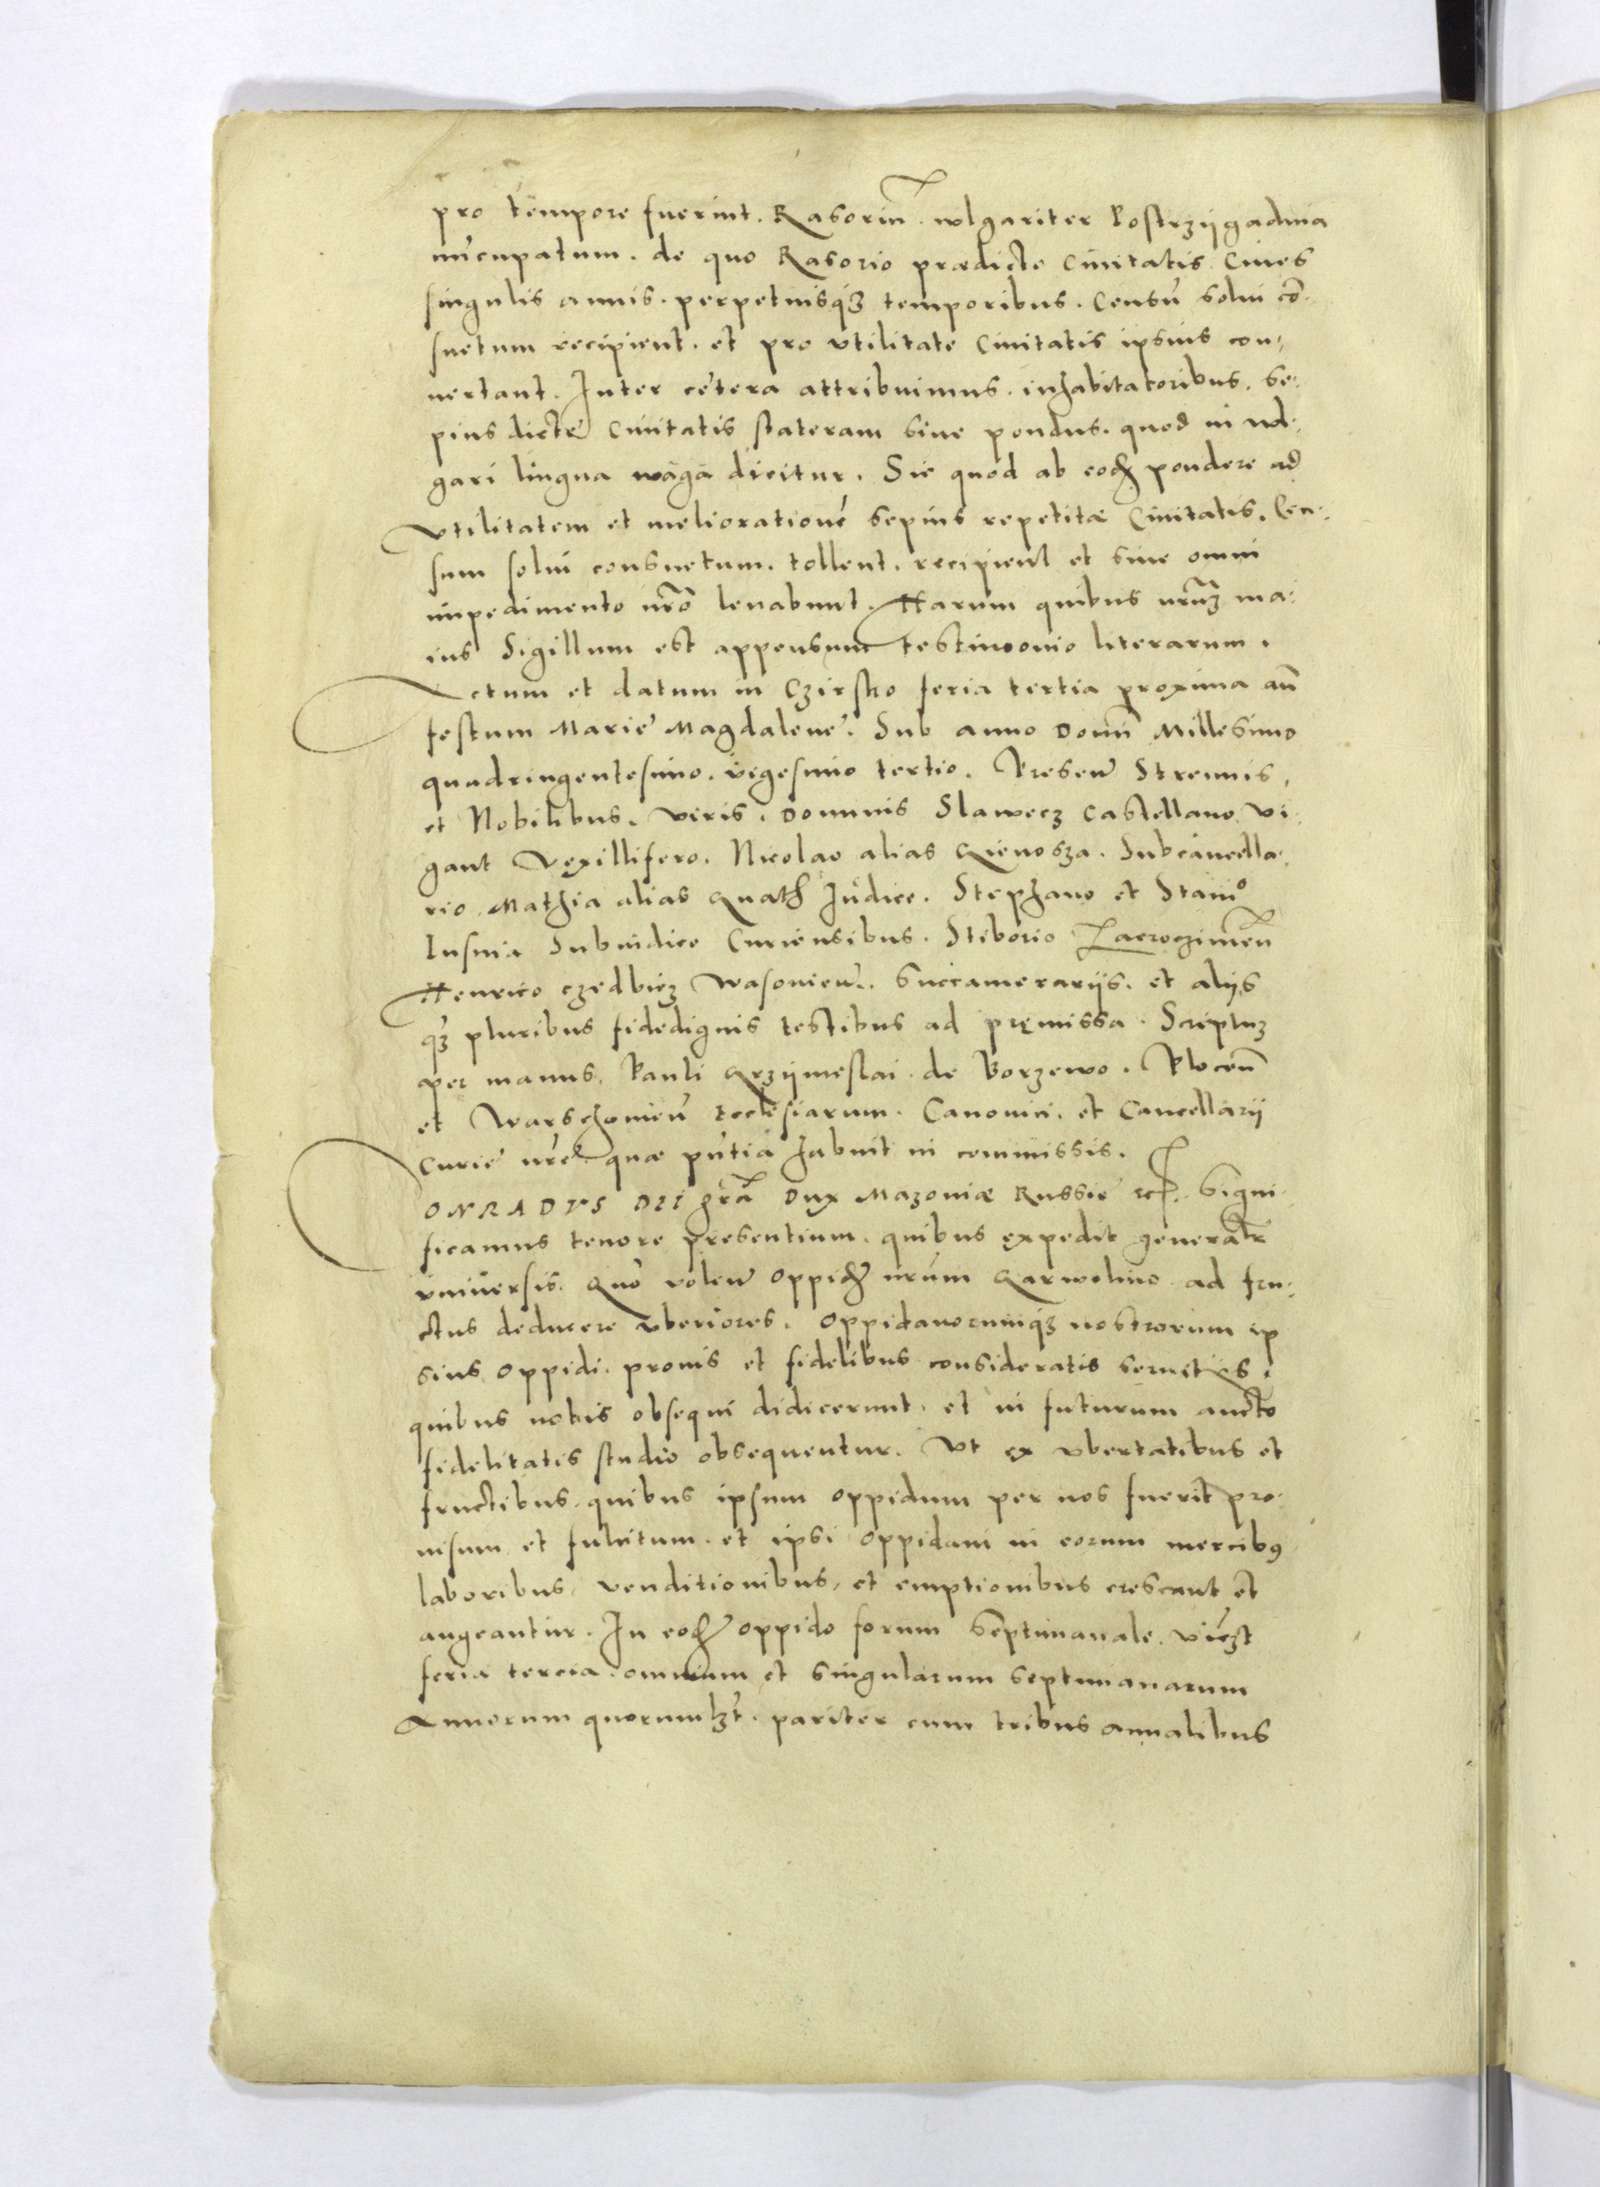 pro tempore fuerint. Rasoriũ. wlgariter Postrzijgadnia
nũcupatum. de quo Rasorio prædicte Ciuitatis Ciues
singulis annis. perpetuisq́ʒ temporibus. Censũ solui cõ-
suetum recipient. et pro vtilitate Ciuitatis ipsius con-
uertant. Inter cetera attribuimus. inhabitatoribus. se-
pius dicte Ciuitatis stateram siue pondus. quod in wl-
gari lingua waga dicitur. Sic quod ab eodẽ pondere ad
vtilitatem et melioratiouẽ sepius repetitæ Ciuitatis. Cen-
sum solui consuetum. tollent. recipient et siue omni
impedimento nrõ leuabunt. Harum quibus nrũʒ ma-
ius Sigillum est appensum testimonio literarum.
Actum et datum in Czirsko feria tertia proxima añ
festum Marie Magdalene. Sub anno Domĩ Millesimo
quadringentesimo. vigesimo tertio. Preseñ Strenuis.
et Nobilibus. viris. Dominis Slawecz Castellano. Vi-
gant Vexillifero. Nicolao alias Gienosza. Subcancella-
rio. Mathia alias Gnath Iudice. Stephano et Stani°
Iusnia Subiudice Curiensibus. Stiborio Zacroczimeñ
Henrico czedbicz Wasonieñ. Succamerarijs. et alijs
q̃ʒ pluribus fidedignis testibus ad pręmissa. Scriptuʒ
per manus. Pauli Grzijmeslai de Borzewo. Ploceñ
et Warschouieñ Ecclesiarum. Canonici. et Cancellarij
Curie nrẽ. quæ pñtia habuit in commissis.
CONRADVS DEI grã Dux Mazoniæ Russie etc. Signi-
ficamus tenore presentium. quibus expedit generalr
vniuersis. Quo volentes oppidũ nrũm Garwolino ad fru-
ctus deducere vberiores. oppidanorumq́ʒ nostrorum ip
sius oppidi. pronis et fidelibus consideratis seruitijs.
quibus nobis obsequi didicerunt. et in futurum aucto
fidelitatis studio obsequentur. Vt ex vbertatibus et
fructibus. quibus ipsum oppidum per nos fuerit pro-
uisum et fulcitum. et ipsi oppidani in eorum mercibꝰ
laboribus, venditionibus, et emptionibus crescant et
augeantur. In eodẽ oppido forum Septimanale. vicʒt
feria tercia. omnium et singularum septimanarum
Annorum quorumlʒt. pariter cum tribus annalibus